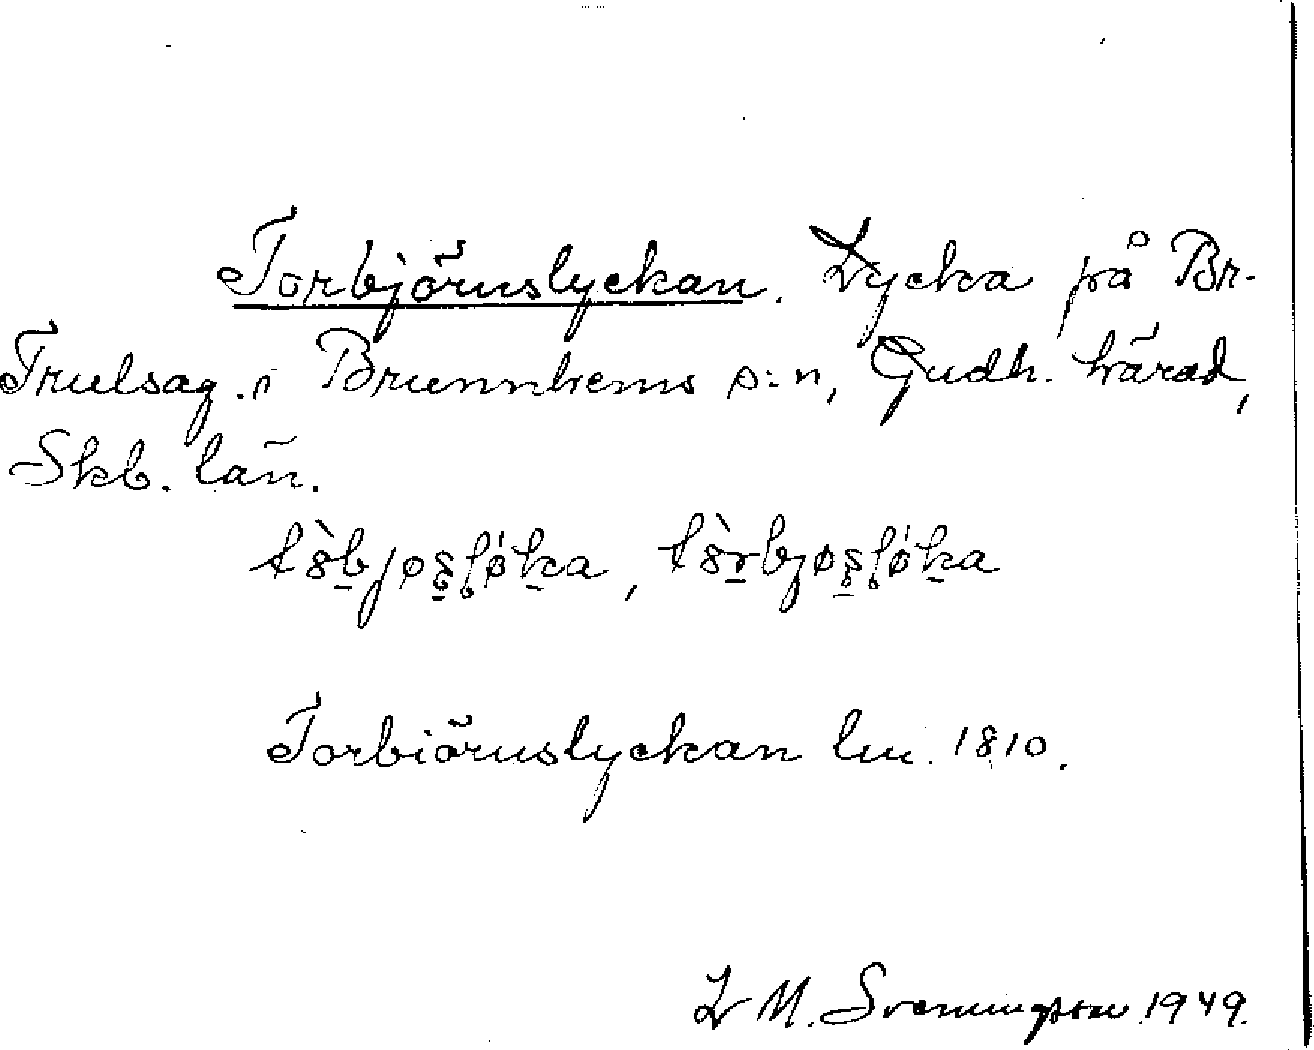 Torbjörnslyckan. Lycka på Br-
Trulsag. i Brunnhems s:n, Gudh. härad,
Skb. län.
Torbiörnslyckan lm. 1810.
L M. Svenningson 1949.